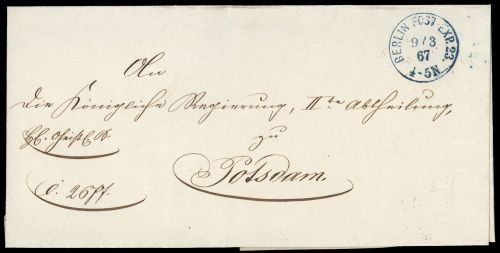 BERLIN POST EXP. 23.
9/3
67
4-5N
An
die Königliche Regierung, IIte Abtheilung,
zu
Potsdam.